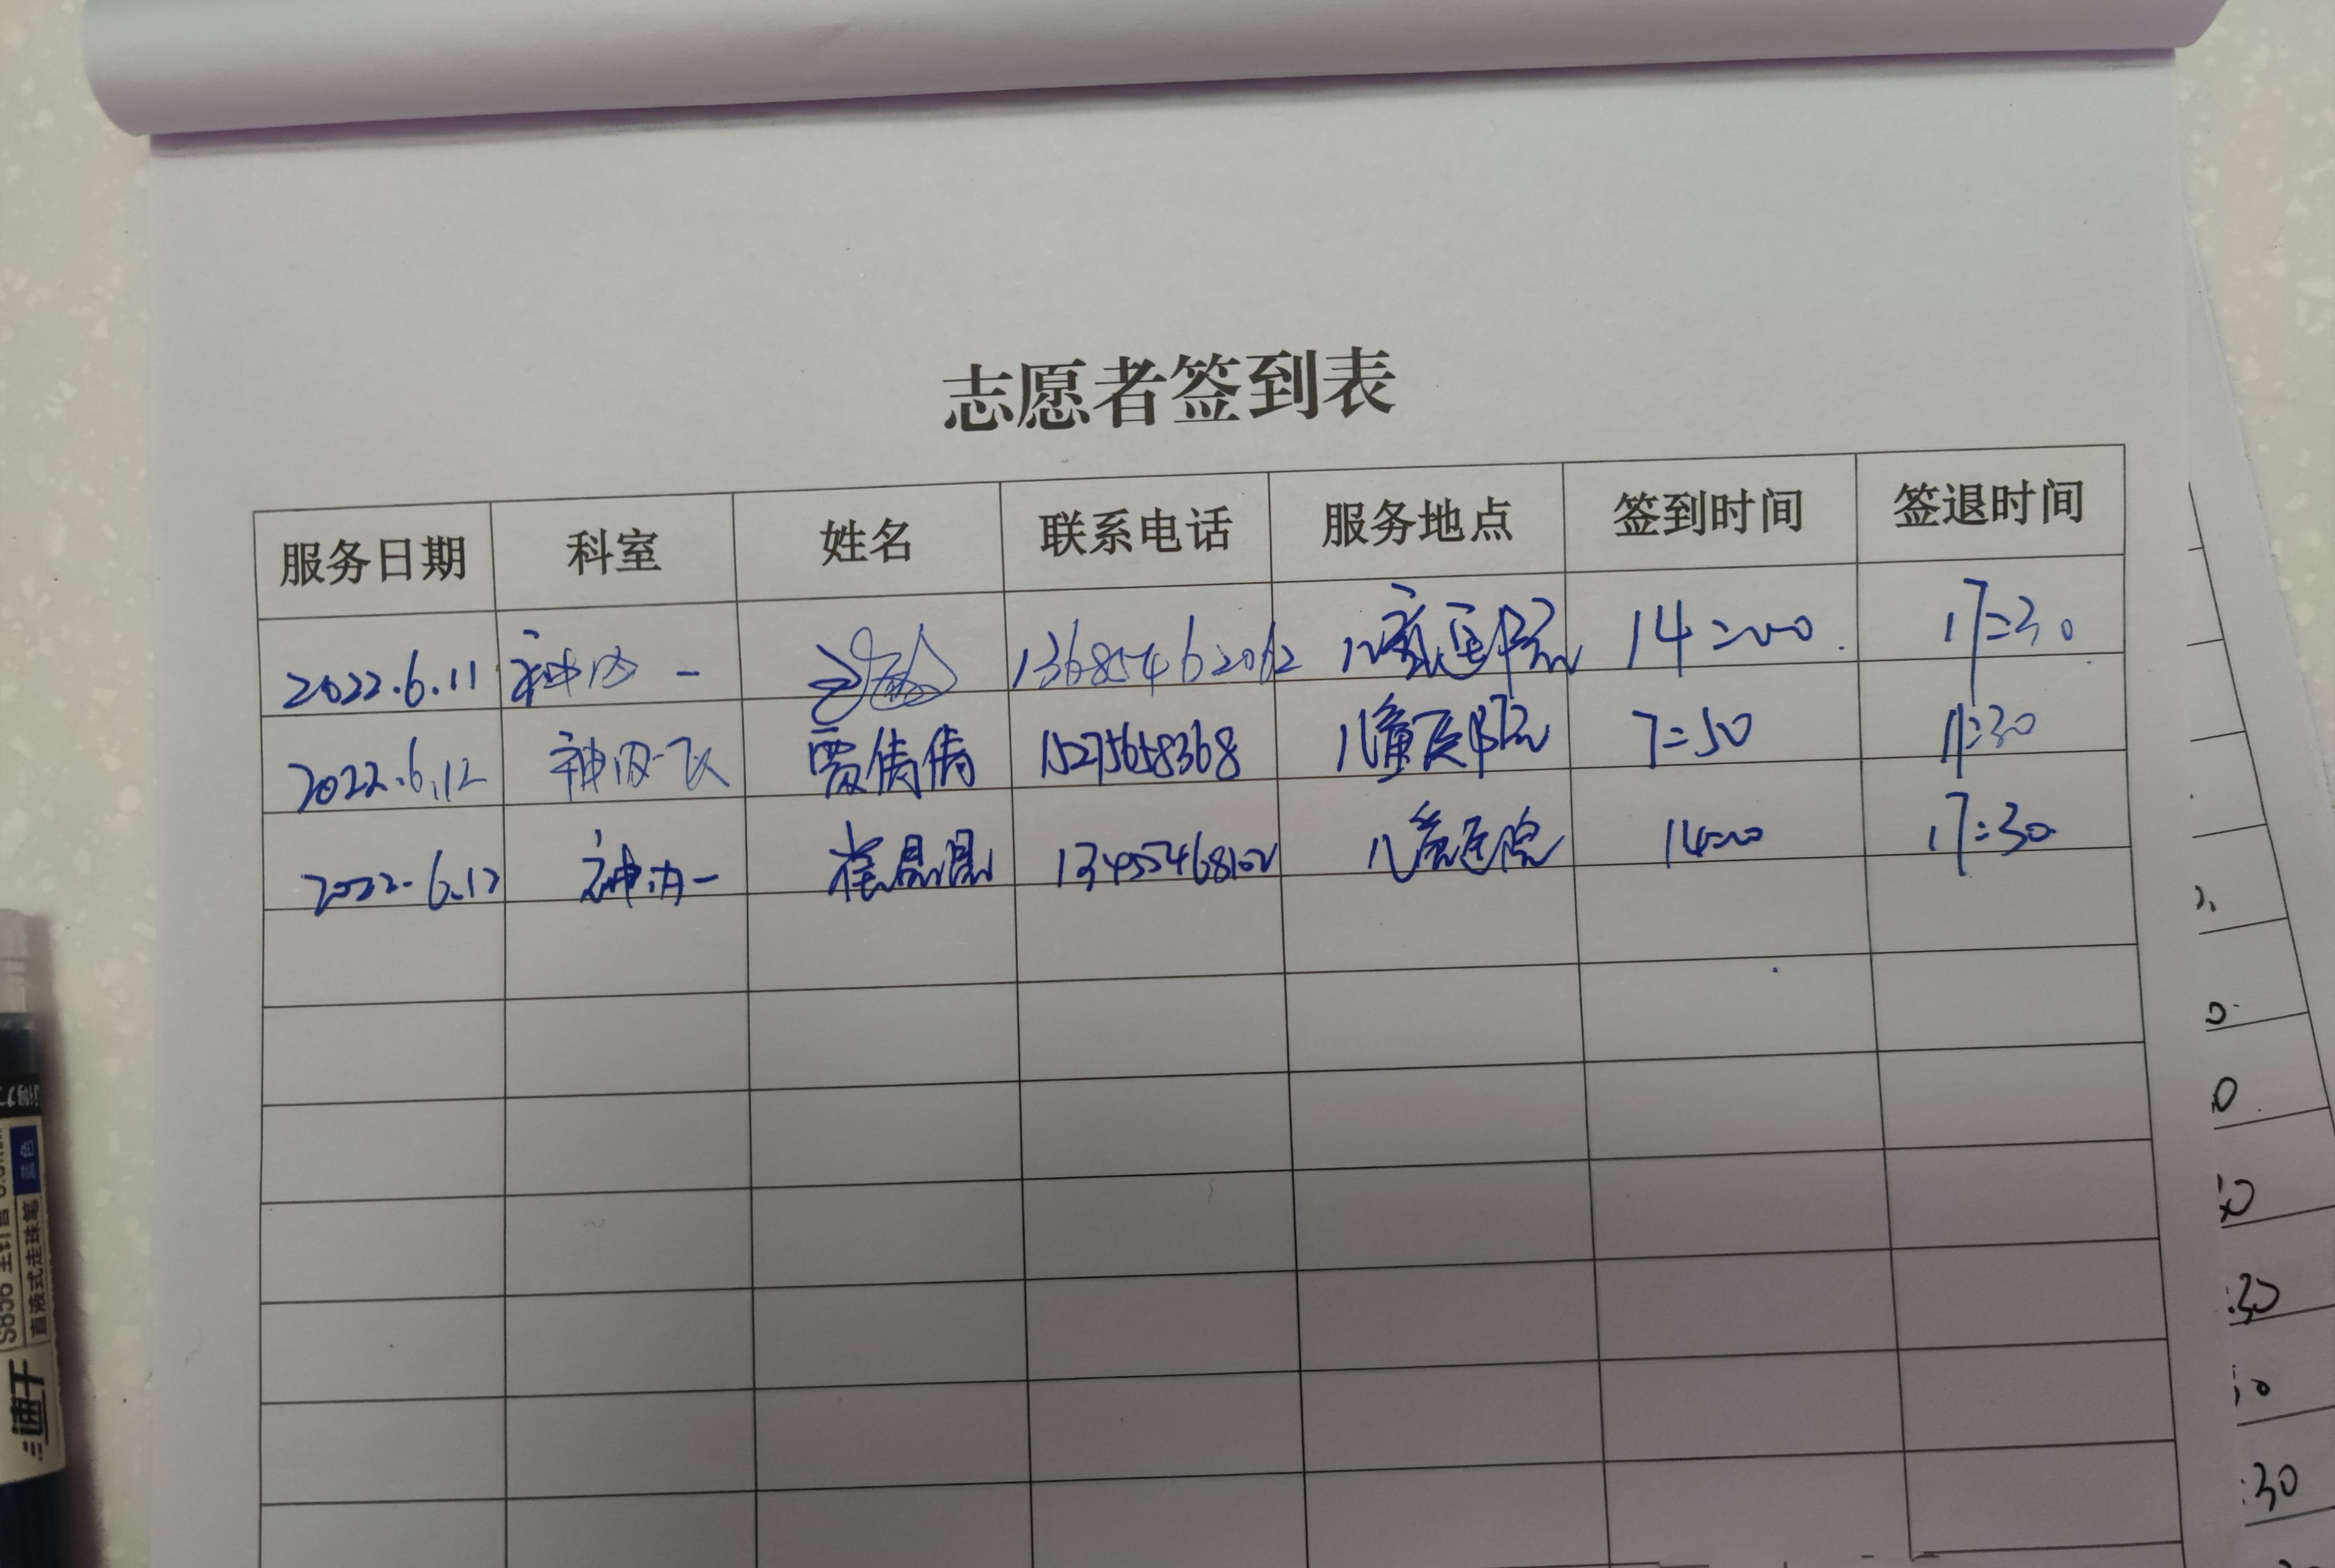 志愿者签到表
服务日期 科室 姓名 联系电话 服务地点 签到时间 签退时间
2022.6.11 神内一 13685462062 儿童医院 14:00 17:30
2022.6.12 神内一 贾倩倩 15275658368 儿童医院 7:50 11:30
2022.6.12 神内一 崔晶晶 13455468102 儿童医院 14:00 17:30
蓝色
直液式走珠笔
速干
:30
:30